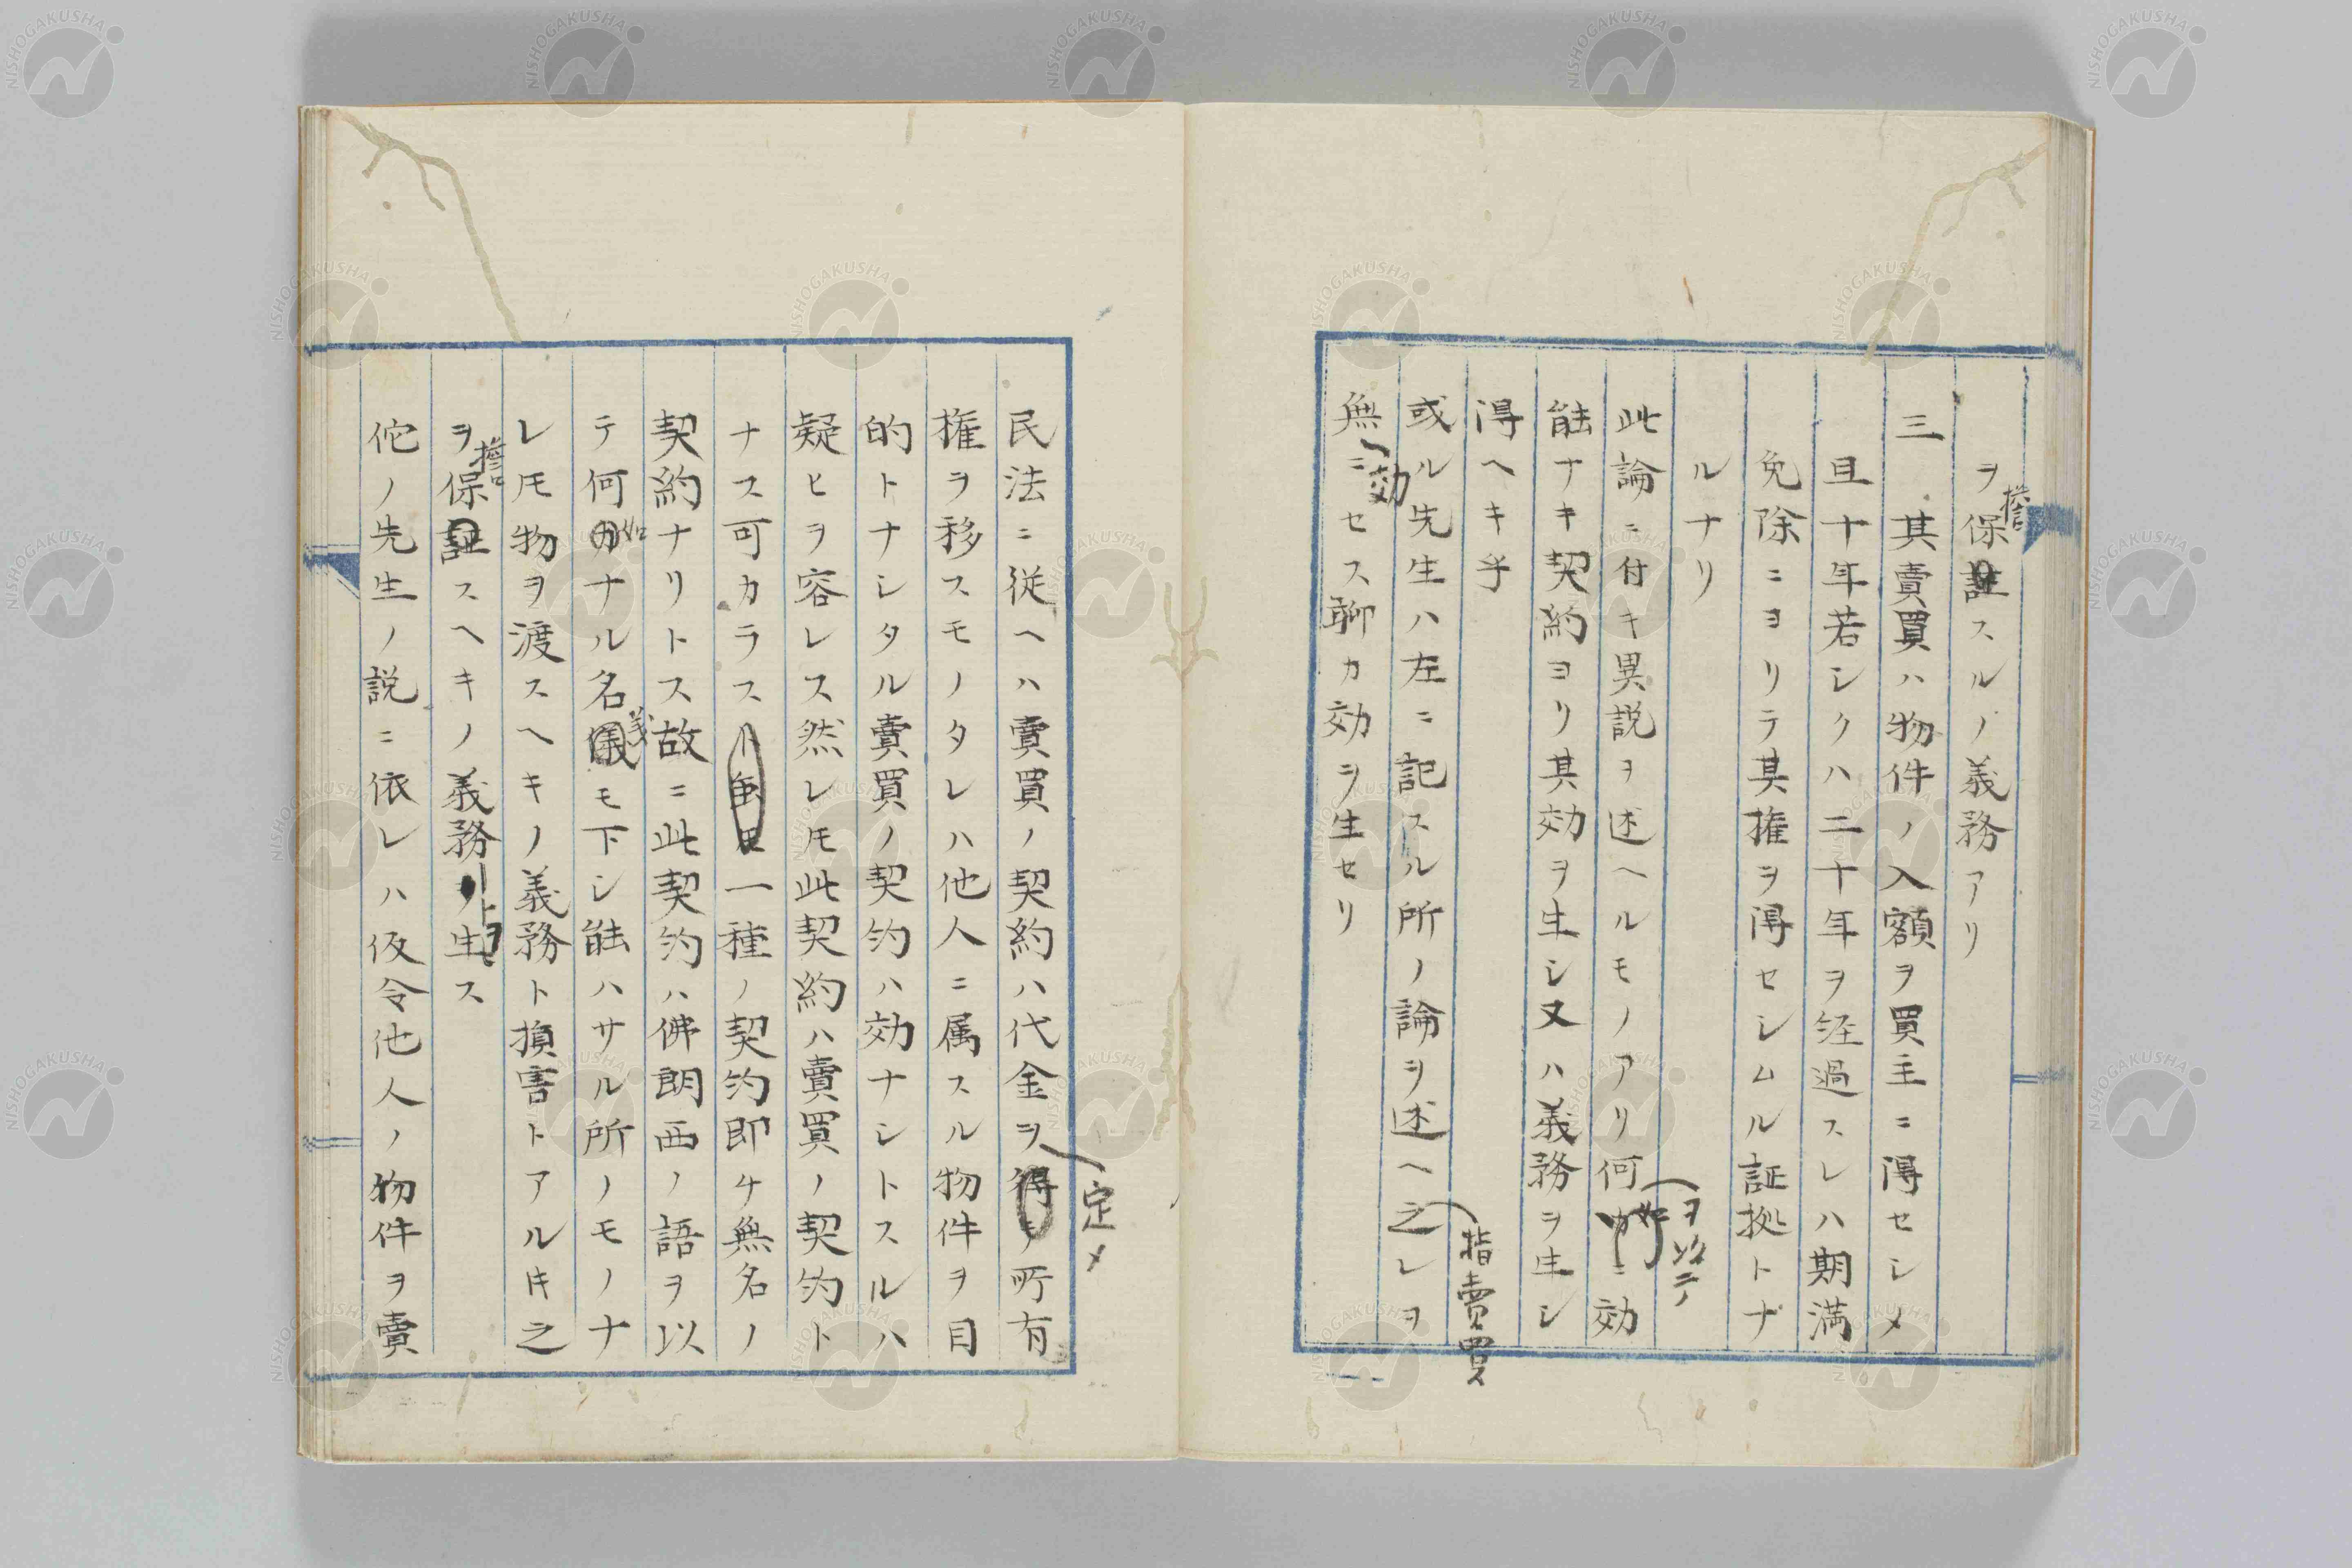 ヲ保擔スルノ義務アリ
三 其賣買ハ物件ノ入額ヲ買主ニ得セシメ
且十年若シクハ二十年ヲ経過スレハ期満
免除ニヨリテ其権ヲ得セシムル証拠トナ
ルナリ
此論ニ付キ異説ヲ述ヘルモノアリ何ヲ以テノ如ニ効
能ナキ契約ヨリ其効ヲ生シ又ハ義務ヲ生シ
得ヘキ乎
或ル先生ハ左ニ記スル所ノ論ヲ述ヘ之レヲ
指賣買
無効ニセス聊カ効ヲ生セリ
民法ニ従ヘハ賣買ノ契約ハ代金ヲ定メ所有
権ヲ移スモノタレハ他人ニ属スル物件ヲ目
的トナシタル賣買ノ契約ハ効ナシトスルハ
疑ヒヲ容レス然レ𪜈此契約ハ賣買ノ契約ト
ナス可カラス一種ノ契約即チ無名ノ
契約ナリトス故ニ此契約ハ佛朗西ノ語ヲ以
テ何如ナル名義モ下シ能ハサル所ノモノナ
レ𪜈物ヲ渡スヘキノ義務ト損害トアルキ之
ヲ擔保スヘキノ義務ヲ生ス
佗ノ先生ノ説ニ依レハ仮令他人ノ物件ヲ賣
NISHOGAKUSHA